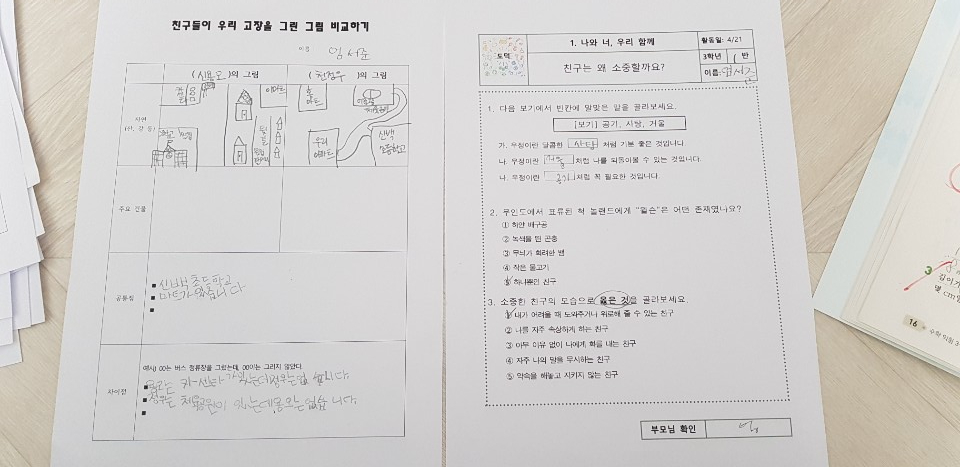 친구들이 우리 고장을 그린 그림 비교하기
이름 엄서준
( )의 그림
( )의 그림
이마트
홈
마트
학교
우리
아파트
신백
초등학교
자연
(산, 강 등)
주요 건물
공통점
신백초등학교
마트가 있습니다
차이점
예시) 00는 버스 정류장을 그렸는데, 00이는 그리지 않았다.
는 카센타가 있는데 는 없습니다.
는 체육공원이 있는데 는 없습니다.
도덕
1. 나와 너, 우리 함께
활동일: 4/21
친구는 왜 소중할까요?
3학년 1 반
이름: 엄서준
1. 다음 보기에서 빈칸에 알맞은 말을 골라보세요.
[보기] 공기, 사탕, 거울
가. 우정이란 달콤한 사탕 처럼 기분 좋은 것입니다.
나. 우정이란 거울 처럼 나를 되돌아볼 수 있는 것입니다.
나. 우정이란 공기 처럼 꼭 필요한 것입니다.
2. 무인도에서 표류된 척 놀랜드에게 "윌슨"은 어떤 존재였나요?
① 하얀 배구공
② 녹색을 띤 곤충
③ 무늬가 화려한 뱀
④ 작은 물고기
⑤ 하나뿐인 친구
3. 소중한 친구의 모습으로 옳은 것을 골라보세요.
① 내가 어려울 때 도와주거나 위로해 줄 수 있는 친구
② 나를 자주 속상하게 하는 친구
③ 아무 이유 없이 나에게 화를 내는 친구
④ 자주 나의 말을 무시하는 친구
⑤ 약속을 해놓고 지키지 않는 친구
부모님 확인
3
길이가
몇 cm
16
수학 익힘 3